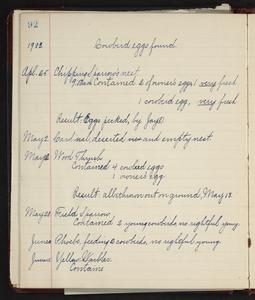 92
1902 Cowbird eggs found.
Apl. 25 Chipping sparrow's nest
Contained 2 of owner's eggs, very fresh
1 cowbird egg, very fresh
Result: Eggs pecked, by Jays
May 2 Cardinal, deserted new and empty nest.
May Wood Thrush
Contained 4 cowbird eggs
1 owner's egg
Result: all thrown out on ground, May 13.
May 28 Field Sparrow
Contained 2 young cowbirds, no rightful young.
June Phoebe, feeding 2 cowbirds, no rightful young.
June Yellow Warbler
Contains